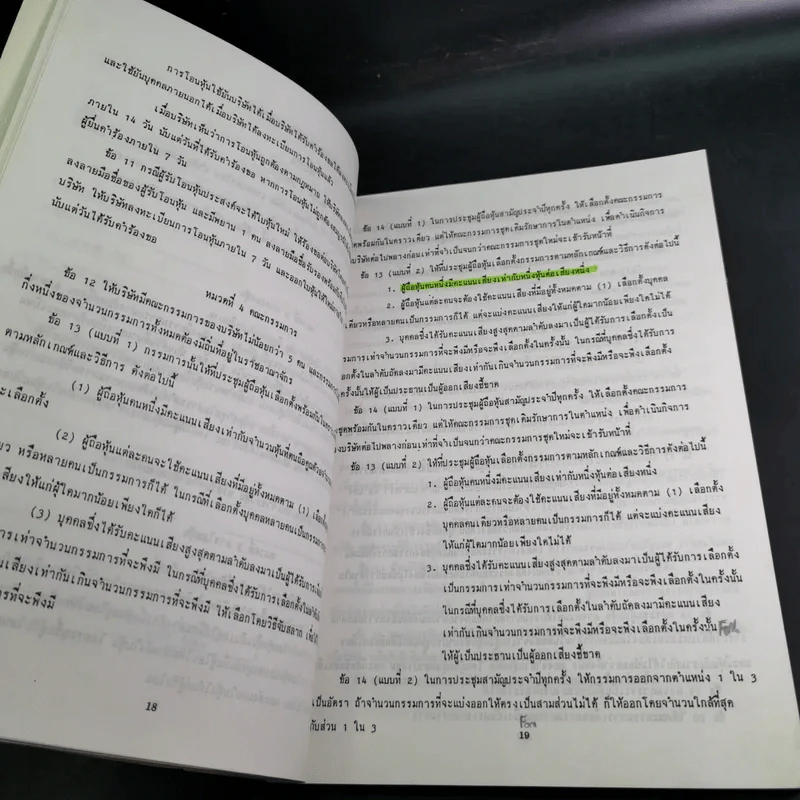 การโอนหุ้นใช้ยันบริษัทได้เมื่อบริษัทได้รับคำร้องขอให้ลงทะเบียน
และใช้ยันบุคคลภายนอกได้เมื่อบริษัทได้ลงทะเบียนการโอนหุ้นแล้ว
เมื่อบริษัทเห็นว่าการโอนหุ้นถูกต้องตามกฎหมาย ให้
ภายใน 14 วัน นับแต่วันที่ได้รับคำร้องขอ หากการโอนหุ้นไม่ถูกต้อง
ผู้ยื่นคำร้องภายใน 7 วัน
ข้อ 11 กรณีผู้รับโอนหุ้นประสงค์จะได้ใบหุ้นใหม่ ให้ร้องขอต่อบริษัท
ลงลายมือชื่อของผู้รับโอนหุ้น และมีพยาน 1 คน ลงลายมือชื่อรับรอง
บริษัท ให้บริษัทลงทะเบียนการโอนหุ้นภายใน 7 วัน และออกใบหุ้นให้ใหม่
นับแต่วันได้รับคำร้องขอ
หมวดที่ 4 คณะกรรมการ
ข้อ 12 ให้บริษัทมีคณะกรรมการของบริษัทไม่น้อยกว่า 5 คน และกรรมการ
กึ่งหนึ่งของจำนวนกรรมการทั้งหมดต้องมีถิ่นที่อยู่ในราชอาณาจักร
ข้อ 13 (แบบที่ 1) กรรมการนั้นให้ที่ประชุมผู้ถือหุ้นเลือกตั้งพร้อมกัน
ตามหลักเกณฑ์และวิธีการ ดังต่อไปนี้
(1) ผู้ถือหุ้นคนหนึ่งมีคะแนนเสียงเท่ากับจำนวนหุ้นที่ตนถือ
ะเลือกตั้ง
(2) ผู้ถือหุ้นแต่ละคนจะใช้คะแนนเสียงที่มีอยู่ทั้งหมดตาม (1)
เดียว หรือหลายคนเป็นกรรมการก็ได้ ในกรณีที่เลือกตั้งบุคคลหลายคนเป็นกรรมการ
เสียงให้แก่ผู้ใดมากน้อยเพียงใดก็ได้
(3) บุคคลซึ่งได้รับคะแนนเสียงสูงสุดตามลำดับลงมาเป็นผู้ได้รับการ
การเท่าจำนวนกรรมการที่จะพึงมี ในกรณีที่บุคคลซึ่งได้รับการเลือกตั้ง
นเสียงเท่ากันเกินจำนวนกรรมการที่จะพึงมี ให้เลือกโดยวิธีจับสลาก
การที่จะพึงมี
18
ข้อ 14 (แบบที่ 1) ในการประชุมผู้ถือหุ้นสามัญประจำปีทุกครั้ง ให้เลือกตั้งคณะกรรมการ
ชุดพร้อมกันในคราวเดียว แต่ให้คณะกรรมการชุดเดิมรักษาการในตำแหน่ง เพื่อดำเนินกิจการ
บริษัทต่อไปพลางก่อนเท่าที่จำเป็นจนกว่าคณะกรรมการชุดใหม่จะเข้ารับหน้าที่
ข้อ 13 (แบบที่ 2) ให้ที่ประชุมผู้ถือหุ้นเลือกตั้งกรรมการตามหลักเกณฑ์และวิธีการดังต่อไปนี้
1. ผู้ถือหุ้นคนหนึ่งมีคะแนนเสียงเท่ากับหนึ่งหุ้นต่อเสียงหนึ่ง
2. ผู้ถือหุ้นแต่ละคนจะต้องใช้คะแนนเสียงที่มีอยู่ทั้งหมดตาม (1) เลือกตั้งบุคคล
เดียวหรือหลายคนเป็นกรรมการก็ได้ แต่จะแบ่งคะแนนเสียงให้แก่ผู้ใดมากน้อยเพียงใดไม่ได้
3. บุคคลซึ่งได้รับคะแนนเสียงสูงสุดตามลำดับลงมา เป็นผู้ได้รับการเลือกตั้งเป็น
กรรมการเท่าจำนวนกรรมการที่จะพึงมีหรือจะพึงเลือกตั้งในครั้งนั้น ในกรณีที่บุคคลซึ่งได้รับการ
เลือกตั้งในลำดับถัดลงมามีคะแนนเสียงเท่ากันเกินจำนวนกรรมการที่จะพึงมีหรือจะพึงเลือกตั้ง
ครั้งนั้นให้ผู้เป็นประธานเป็นผู้ออกเสียงชี้ขาด
ข้อ 14 (แบบที่ 1) ในการประชุมผู้ถือหุ้นสามัญประจำปีทุกครั้ง ให้เลือกตั้งคณะกรรมการ
ชุดพร้อมกันในคราวเดียว แต่ให้คณะกรรมการชุดเดิมรักษาการในตำแหน่ง เพื่อดำเนินกิจการ
บริษัทต่อไปพลางก่อนเท่าที่จำเป็นจนกว่าคณะกรรมการชุดใหม่จะเข้ารับหน้าที่
ข้อ 13 (แบบที่ 2) ให้ที่ประชุมผู้ถือหุ้นเลือกตั้งกรรมการตามหลักเกณฑ์และวิธีการดังต่อไปนี้
1. ผู้ถือหุ้นคนหนึ่งมีคะแนนเสียงเท่ากับหนึ่งหุ้นต่อเสียงหนึ่ง
2. ผู้ถือหุ้นแต่ละคนจะต้องใช้คะแนนเสียงที่มีอยู่ทั้งหมดตาม (1) เลือกตั้ง
บุคคลคนเดียวหรือหลายคนเป็นกรรมการก็ได้ แต่จะแบ่งคะแนนเสียง
ให้แก่ผู้ใดมากน้อยเพียงใดไม่ได้
3. บุคคลซึ่งได้รับคะแนนเสียงสูงสุดตามลำดับลงมาเป็นผู้ได้รับการเลือกตั้ง
เป็นกรรมการเท่าจำนวนกรรมการที่จะพึงมีหรือจะพึงเลือกตั้งในครั้งนั้น
ในกรณีที่บุคคลซึ่งได้รับการเลือกตั้งในลำดับถัดลงมามีคะแนนเสียง
เท่ากันเกินจำนวนกรรมการที่จะพึงมีหรือจะพึงเลือกตั้งในครั้งนั้น
ให้ผู้เป็นประธานเป็นผู้ออกเสียงชี้ขาด
ข้อ 14 (แบบที่ 2) ในการประชุมสามัญประจำปีทุกครั้ง ให้กรรมการออกจากตำแหน่ง 1 ใน 3
เป็นอัตรา ถ้าจำนวนกรรมการที่จะแบ่งออกให้ตรงเป็นสามส่วนไม่ได้ ก็ให้ออกโดยจำนวนใกล้ที่สุด
กับส่วน 1 ใน 3
19